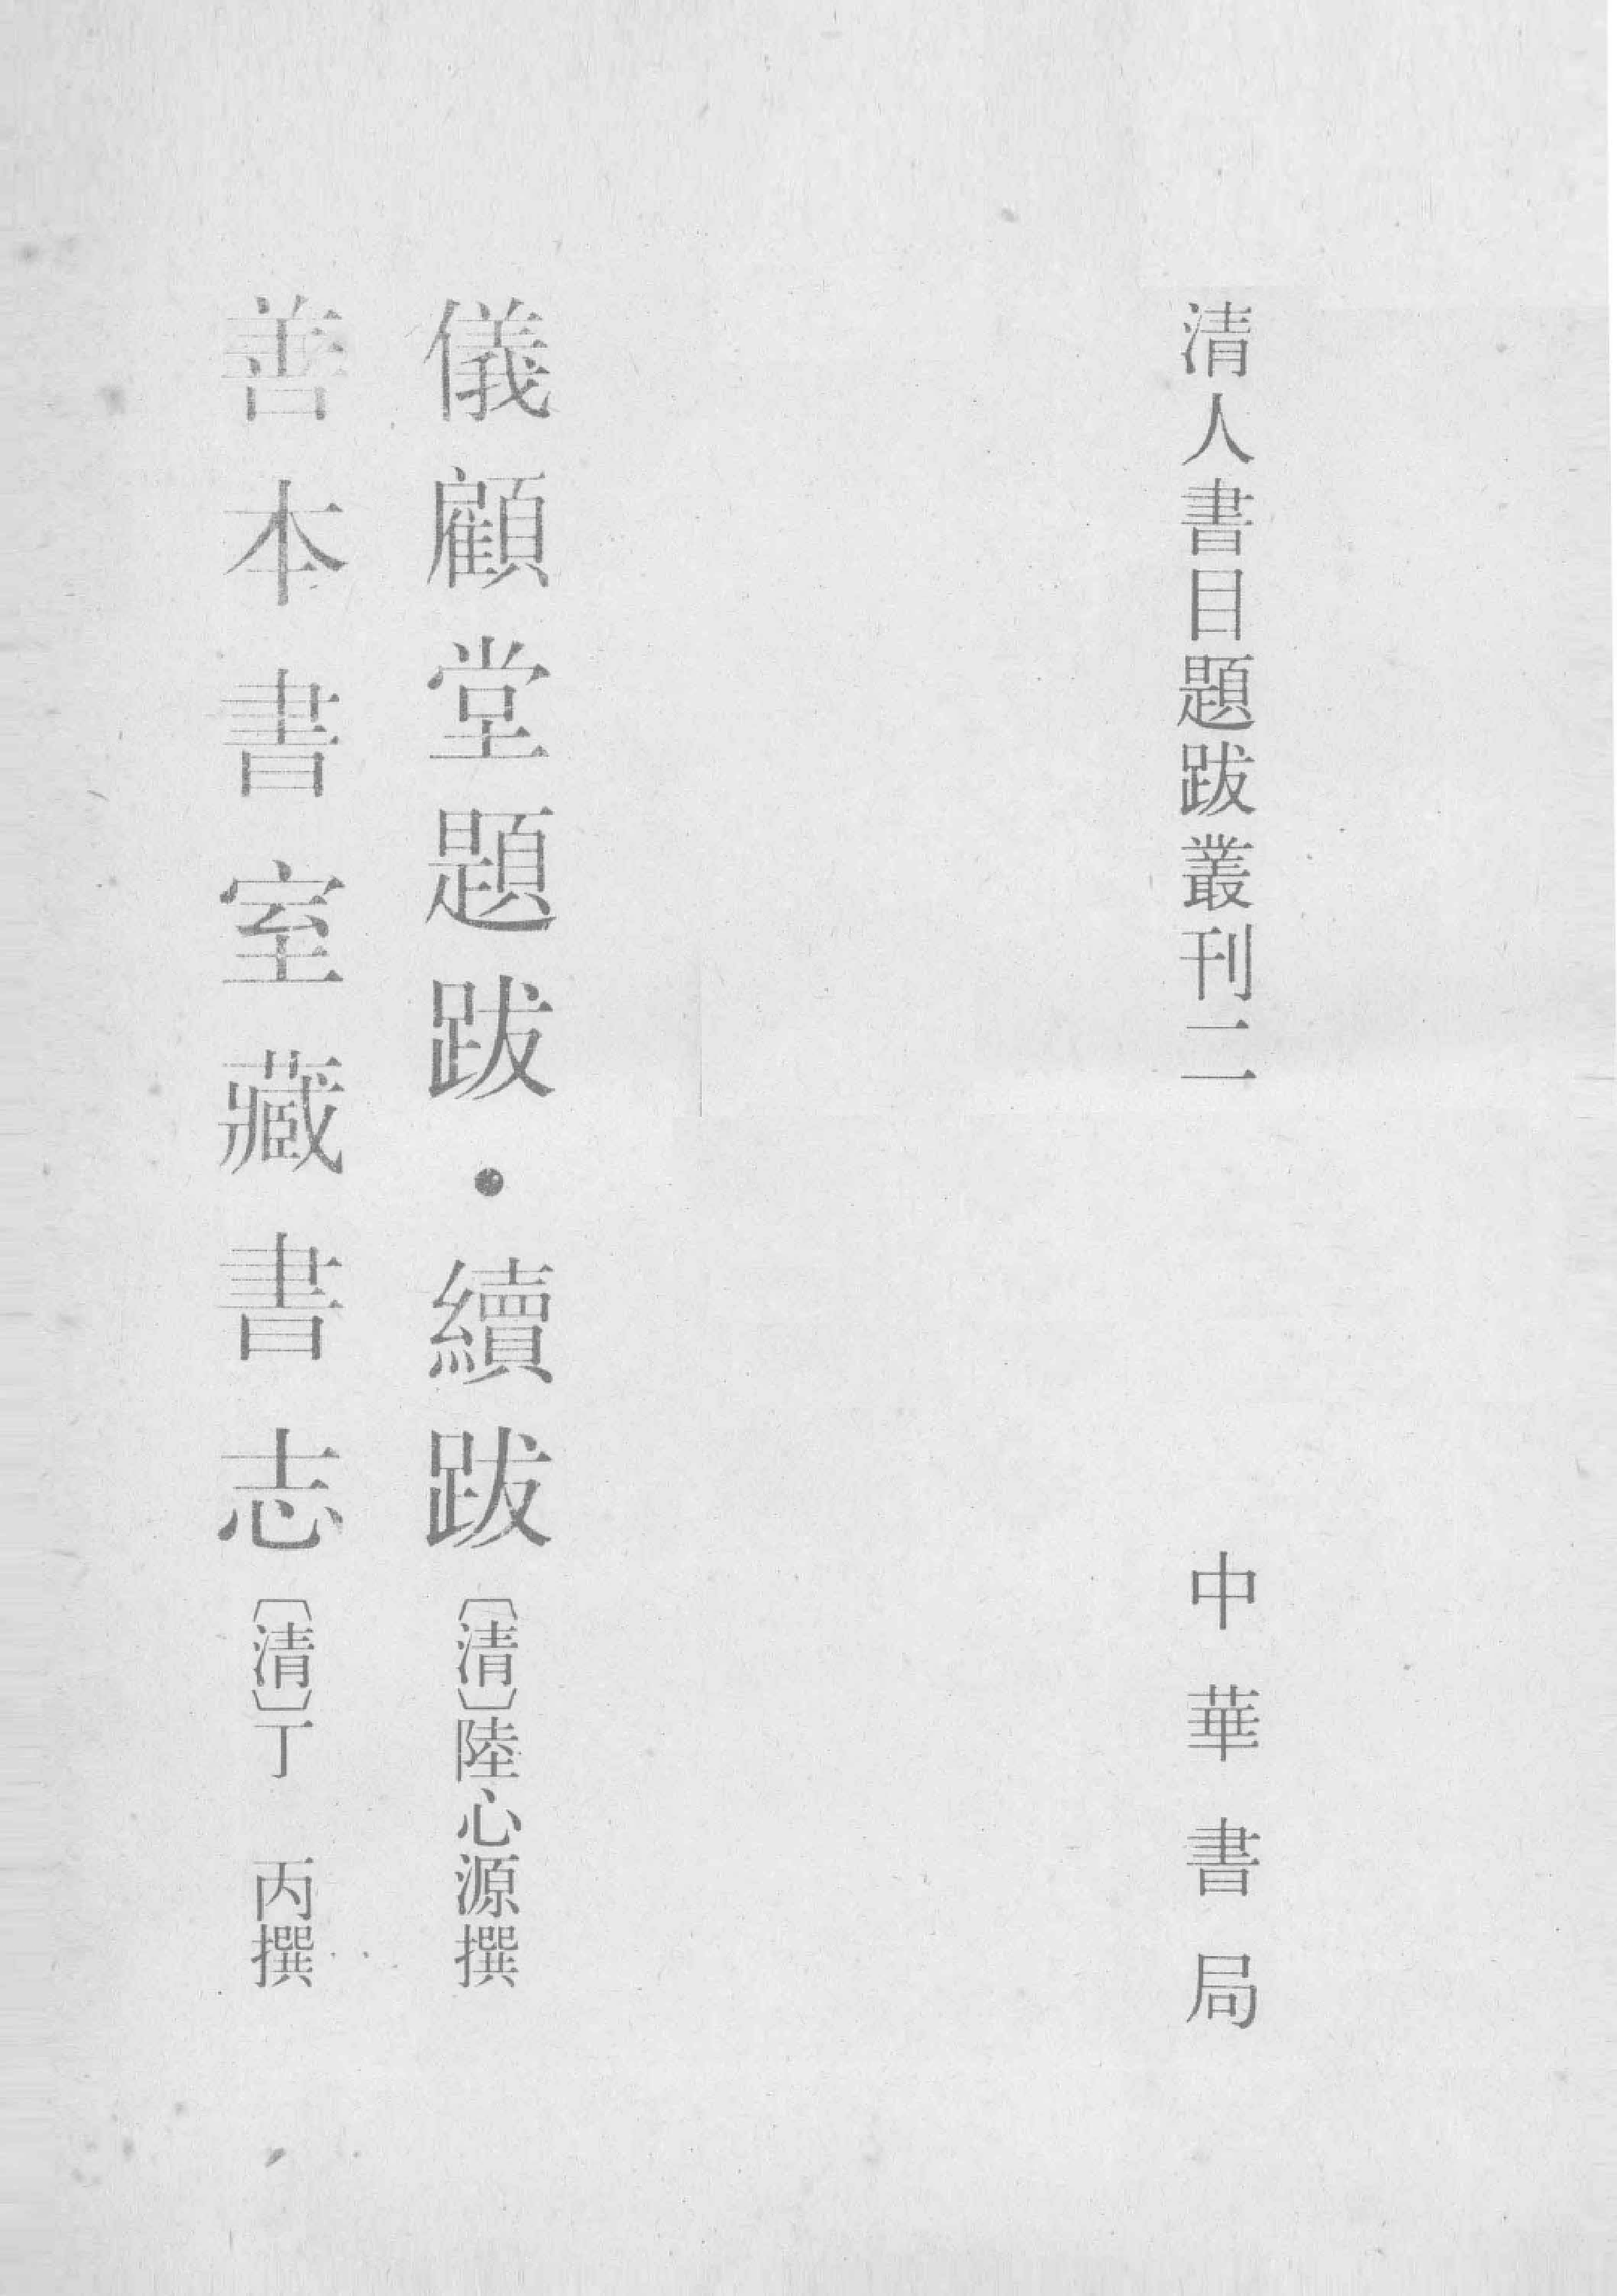 清人書目題跋叢刊二
中華書局
儀顧堂題跋·續跋〔清〕陸心源撰
善本書室藏書志〔清〕丁 丙撰